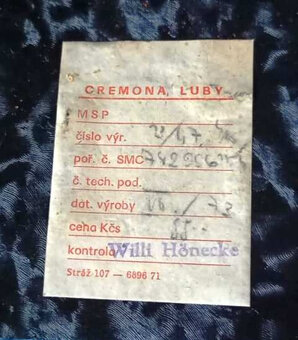 CREMONA, LUBY
MSP
číslo výr.
poř. č. SMC
č. tech. pod.
dat. výroby / 73
cena Kčs
kontrola Willi Hönecke
Stráž 107 — 6896 71